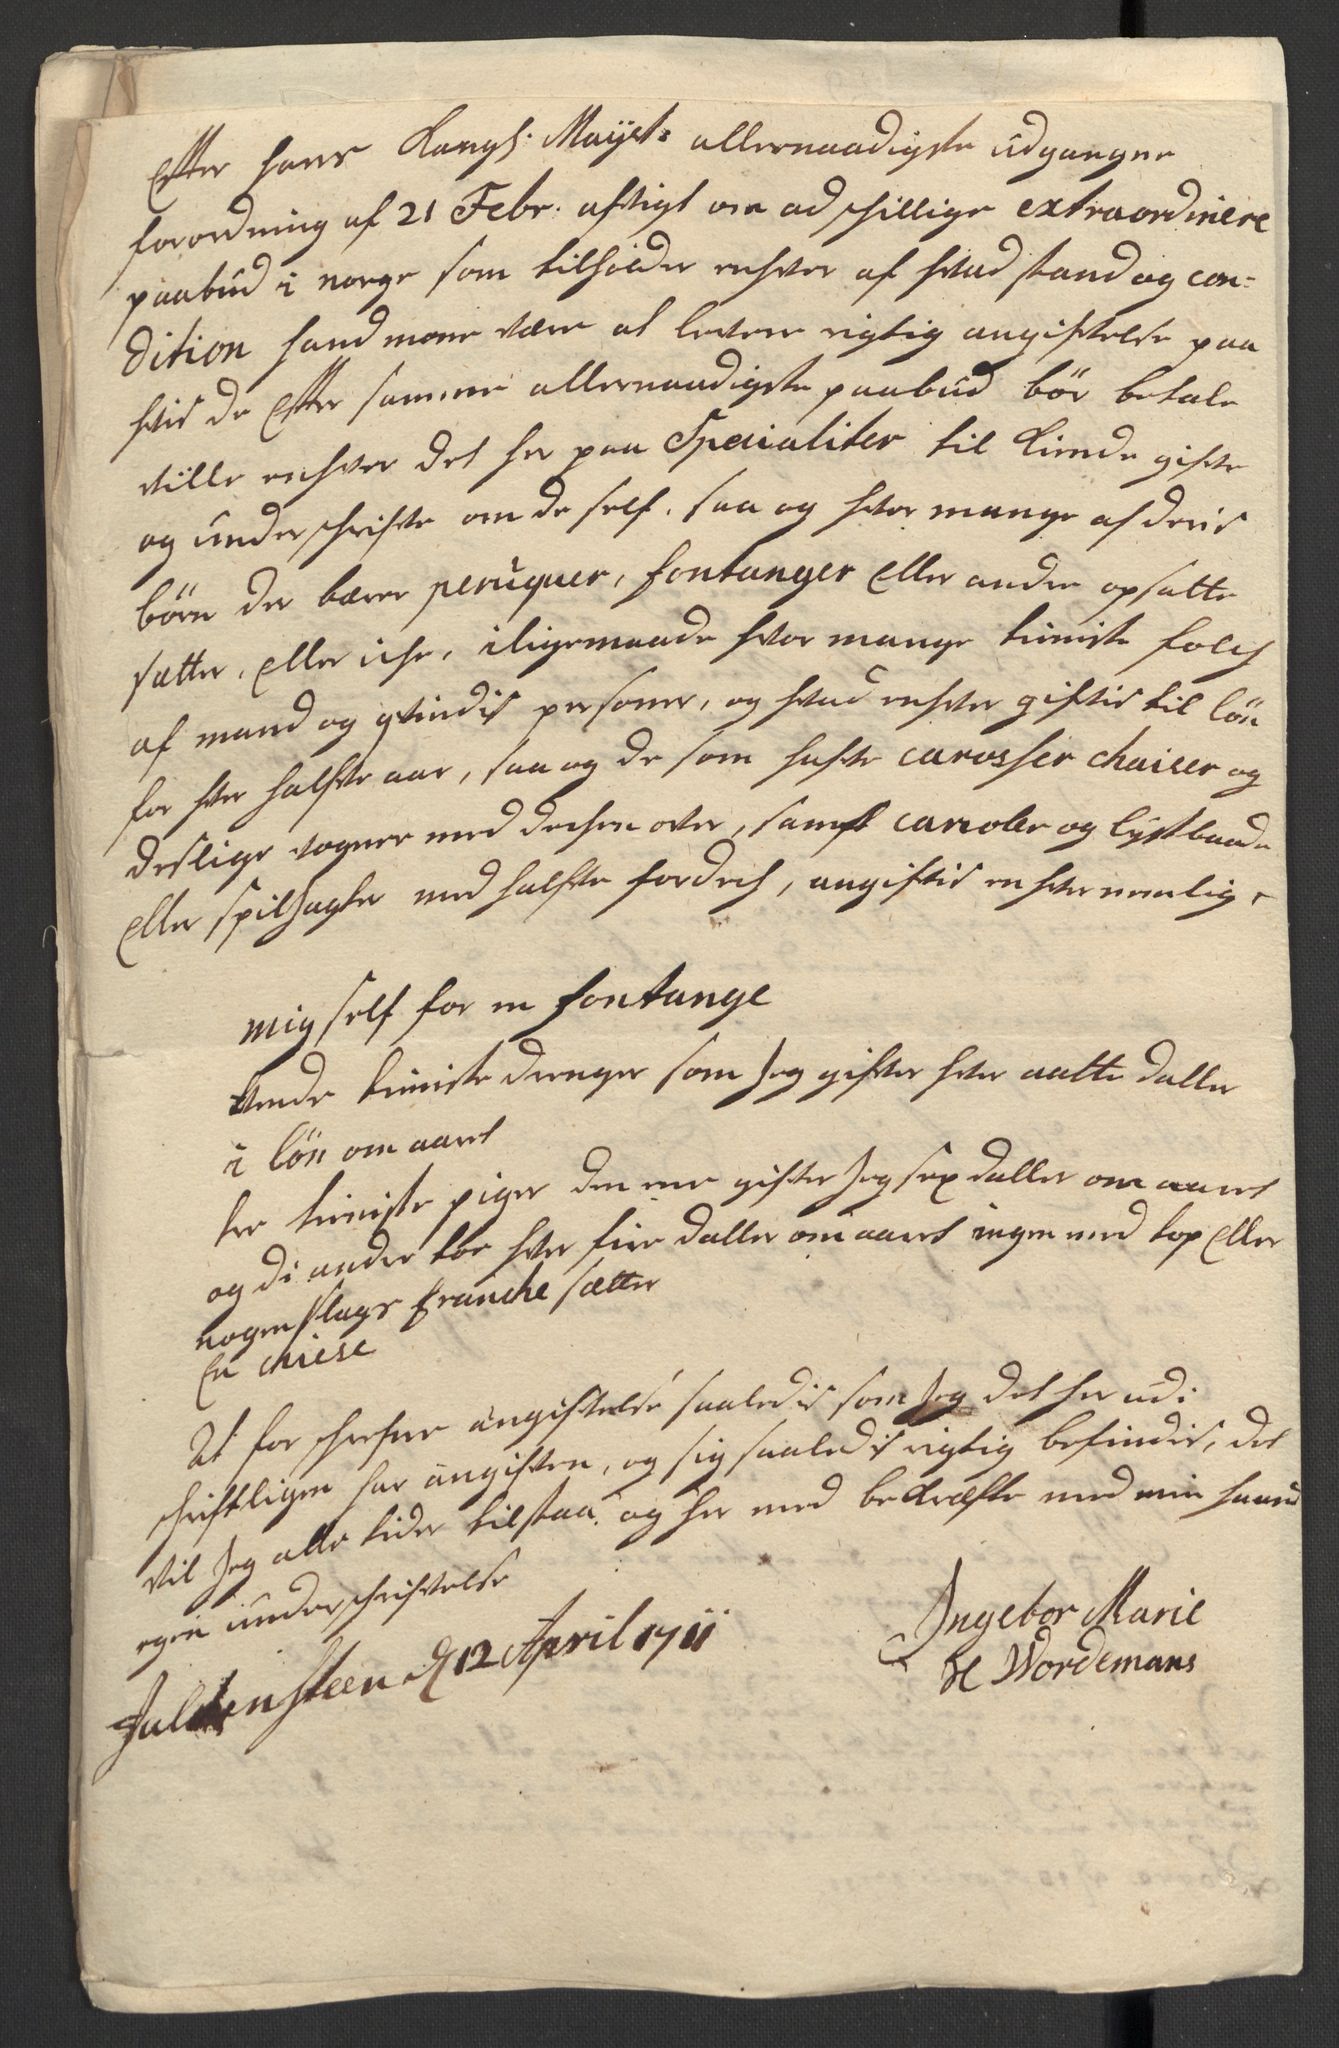 Efter hans Kongl. Mayst: allernaadigste udgangne
forordning af 21 Febr. aftigt om adschillige extraordinere
paabud i norge som tilholder enhver af hvad stand og con-
dition hand mone være at levere rigtig angiftelse paa
hvis de Efter samme allernaadigste paabud bör betale
ville enhver det her paa Specialiter til Kiende gifve
og underschrifve om de self, saa og hvor mange af deris
börn der bærer peruquer, fontanger Eller andre opsatte
sætter, Eller iche, iligemaade hvor mange tieniste folch
af mand og qvindis personer, og hvad enhver gifvis til lön
for hver halfve aar, saa og de som hafve carosser chaiser og
deslige vogner med dechen over, samt carioler og lystbaade
Eller spiljagter med halfve fordech, angifvis enhver nemlig,
mig self for en fontange
tvende tieniste drenger som Jeg gifver hver aatte daller
i lön om aaret
tre tieniste piger den ene gifver Jeg sex daller om aaret
og di andre toe hver fiire daller om aaret ingen med top Eller
nogen slags franche sætter
En chiese
At forschrefne angiftelse saaledis som Jeg det her udi
schriftligen har angifven, og sig saaledis rigtig befindis, det
vil Jeg alle tider tilstaa og her med bekræfte med min haand
egen underschrifvelse
Jaldensteen d 12 April 1711
Ingebor Marie
Sl Wordemans